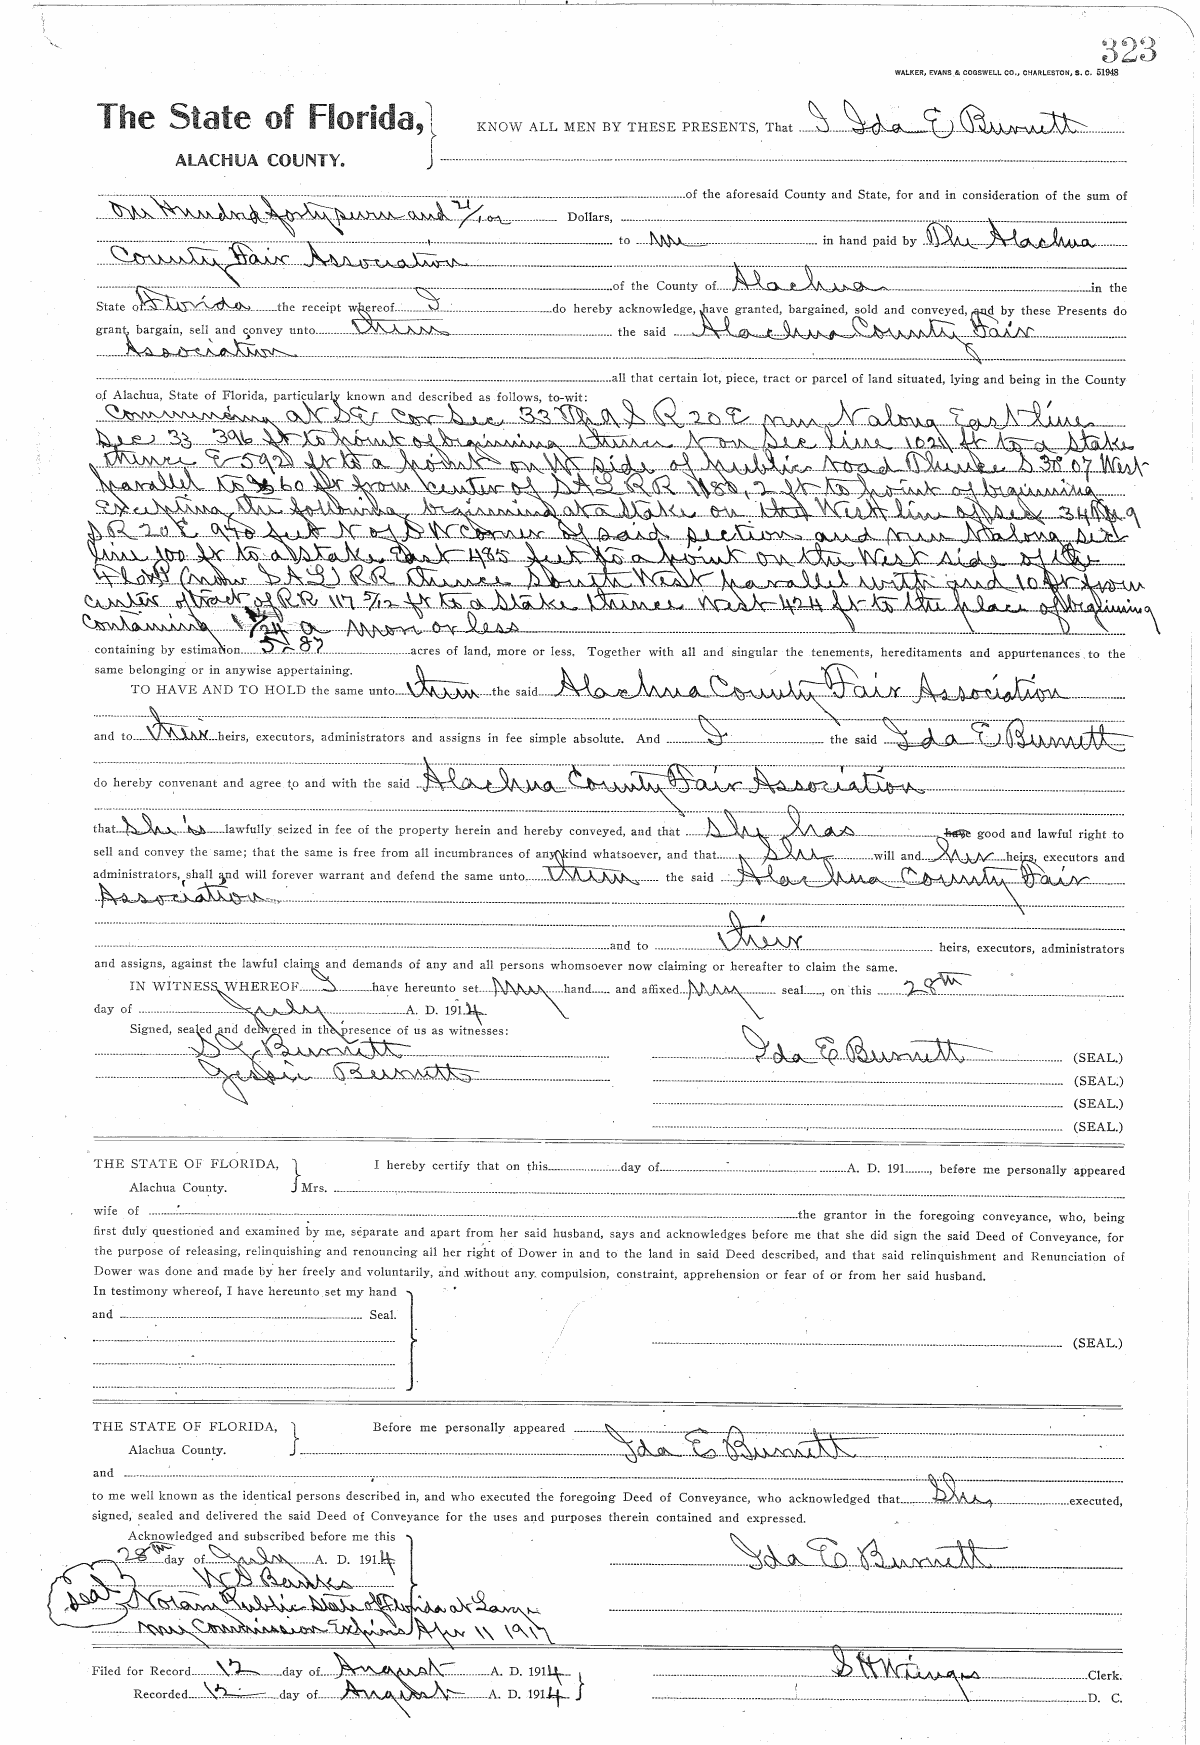 323
WALKER, EVANS & COGSWELL CO., CHARLESTON, S. C. 51948
The State of Florida,
ALACHUA COUNTY.
KNOW ALL MEN BY THESE PRESENTS, That I Ida E Burnett
of the aforesaid County and State, for and in consideration of the sum of
One Hundred forty seven and 21/100 Dollars,
to me in hand paid by The Alachua
County Fair Association
of the County of Alachua in the
State of Florida the receipt whereof I do hereby acknowledge, have granted, bargained, sold and conveyed, and by these Presents do
grant, bargain, sell and convey unto them the said Alachua County Fair
Association
all that certain lot, piece, tract or parcel of land situated, lying and being in the County
of Alachua, State of Florida, particularly known and described as follows, to-wit:
Commencing at SE Cor Sec 33 Tp 9 S R 20 E run N along East line
Sec 33 396 ft to point of beginning thence N on Sec line 1021 ft to a stake
thence E 592 ft to a point on W side of public road Thence S 30° 07 West
parallel to 60 ft from center of SAL RR 1180,2 ft to point of beginning
Excepting the following beginning at a stake on the West line of sec 34 Tp 9
S R 20 E 940 feet N of SW corner of said section and run N along sect
line 100 ft to a stake East 485 feet to a point on the West side of the
(now SAL) RR thence South West parallel with and 10 ft from
center of tract of RR 117 5/12 ft to a stake thence West 424 ft to the place of beginning
containing a more or less
containing by estimation 5-87 acres of land, more or less. Together with all and singular the tenements, hereditaments and appurtenances to the
same belonging or in anywise appertaining.
TO HAVE AND TO HOLD the same unto them the said Alachua County Fair Association
and to their heirs, executors, administrators and assigns in fee simple absolute. And I the said Ida E Burnett
do hereby convenant and agree to and with the said Alachua County Fair Association
that she is lawfully seized in fee of the property herein and hereby conveyed, and that she has have good and lawful right to
sell and convey the same; that the same is free from all incumbrances of any kind whatsoever, and that she will and her heirs, executors and
administrators, shall and will forever warrant and defend the same unto them the said Alachua County Fair
Association
and to their heirs, executors, administrators
and assigns, against the lawful claims and demands of any and all persons whomsoever now claiming or hereafter to claim the same.
IN WITNESS WHEREOF I have hereunto set my hand and affixed my seal, on this 28th
day of July A. D. 1914
Signed, sealed and delivered in the presence of us as witnesses:
S J Burnett
Jessie Burnett
Ida E Burnett (SEAL.)
(SEAL.)
(SEAL.)
(SEAL.)
THE STATE OF FLORIDA,
Alachua County.
I hereby certify that on this day of A. D. 191 , before me personally appeared
Mrs.
wife of the grantor in the foregoing conveyance, who, being
first duly questioned and examined by me, separate and apart from her said husband, says and acknowledges before me that she did sign the said Deed of Conveyance, for
the purpose of releasing, relinquishing and renouncing all her right of Dower in and to the land in said Deed described, and that said relinquishment and Renunciation of
Dower was done and made by her freely and voluntarily, and without any compulsion, constraint, apprehension or fear of or from her said husband.
In testimony whereof, I have hereunto set my hand
and Seal.
(SEAL.)
THE STATE OF FLORIDA,
Alachua County.
Before me personally appeared
Ida E Burnett
and
to me well known as the identical persons described in, and who executed the foregoing Deed of Conveyance, who acknowledged that She executed,
signed, sealed and delivered the said Deed of Conveyance for the uses and purposes therein contained and expressed.
Acknowledged and subscribed before me this
28th day of July A. D. 1914
Ida E Burnett
W S Banks
Seal
Notary Public State of Florida at Large
my Commission Expires Apr 11 1917
Filed for Record 12 day of August A. D. 1914
S H Wienges Clerk.
Recorded 12 day of August A. D. 1914
D. C.